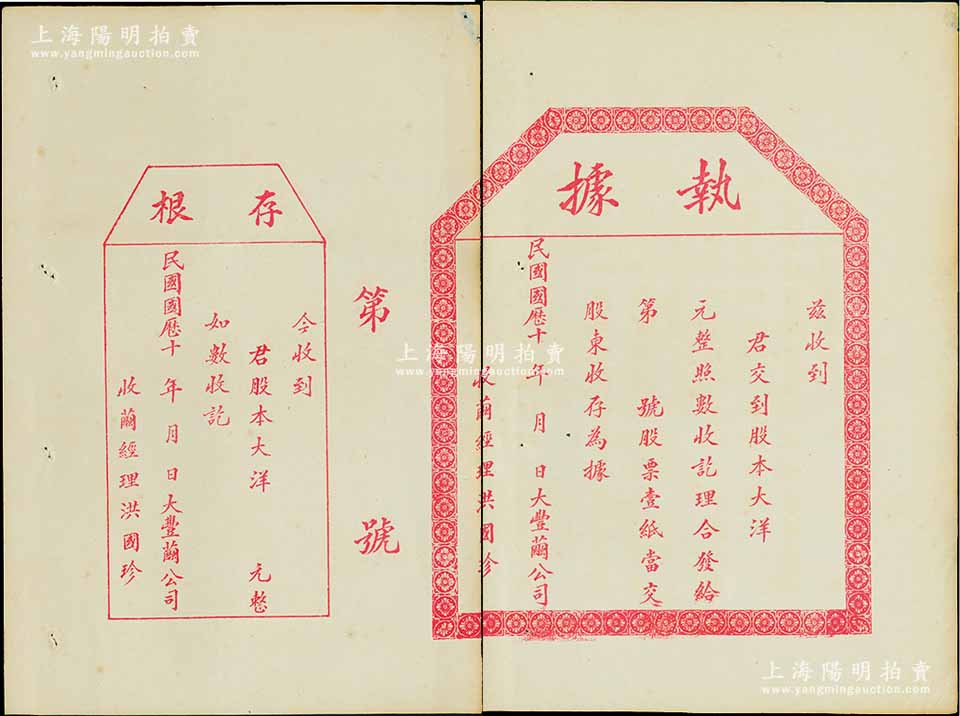 上海陽明拍賣
www.yangmingauction.com
執據
茲收到
君交到股本大洋
元整照數收訖理合發給
第 號股票壹紙當交
股東收存為據
民國國歷十 年 月 日大豐繭公司
收繭經理洪國珍
第 號
上海陽明拍賣
www.yangmingauction.com
存根
今收到
君股本大洋 元整
如數收訖
民國國歷十 年 月 日大豐繭公司
收繭經理洪國珍
上海陽明拍賣
www.yangmingauction.com